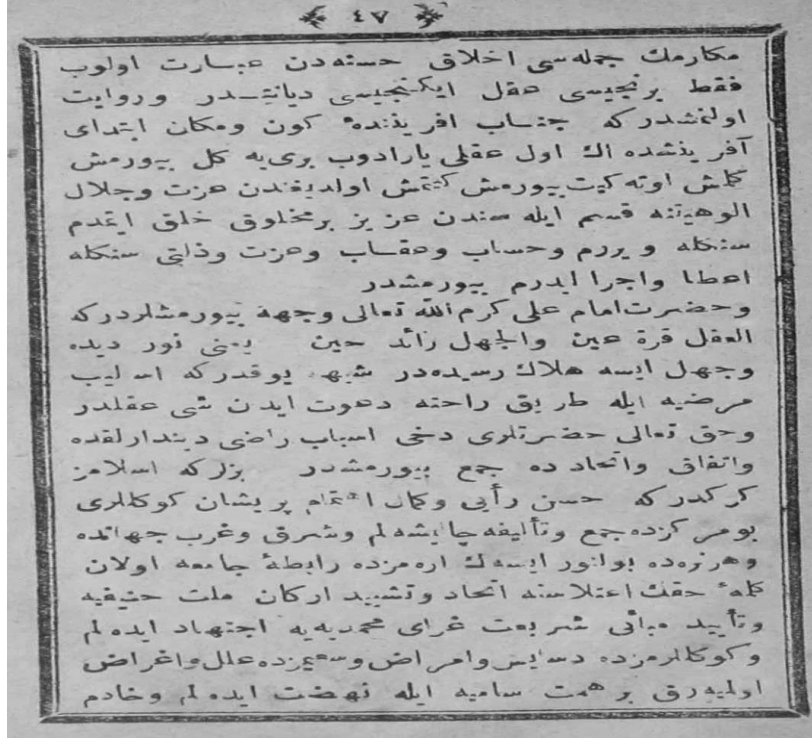 ٤٧
مكارمك جمله‌سى اخلاق حسنه‌دن عبـارت اولوب
فقط برنجيسى عقل ايكنجيسى ديانتـدر وروايت
اولنمشدركه جنـاب آفريننده كون ومكان ابتداى
آفرينشده اك اول عقلى يارادوب برى‌يه كل بيورمش
كلمش اوته كيت بيورمش كيتمش اولديغندن عزت وجلال
الوهيتنه قسم ايله سندن عزيز برمخلوق خلق ايتمدم
سنكله ويررم وحساب وعقـاب وعزت وذلتى سنكله
اعطا واجرا ايدرم بيورمشدر
وحضرت‌امام على كرم‌الله تعالى وجهه بيورمشلردركه
العقل قرة عين والجهل رائد حين يعنى نور ديده
وجهل ايسه هلاك رسيده‌در شبهه يوقدركه اساليب
مرضيه ايله طريق راحته دعوت ايدن شى عقلدر
وحق تعالى حضرتلرى دخى اسباب راضى ديندارلقده
واتفاق واتحاد ده جمع بيورمشدر بزلركه اسلامز
كركدركه حسن رأيى وكمال اهتمام پريشان كوكللرى
بومركزده جمع وتأليفه چاليشه‌لم وشرق وغرب جهاتده
وهرنره‌ده بولنور ايسه‌ك اره‌مزده رابطهٔ جامعه اولان
كلمهٔ حقك اعتلاسنه اتحاد وتشييد اركان ملت حنيفيه
وتأييد مبانئ شريعت غراى محمديه‌يه اجتهاد ايده‌لم
وكوكللرمزده دسايس وامراض وسعيمزده علل واغراض
اولميه‌رق برهمت ساميه ايله نهضت ايده‌لم وخادم